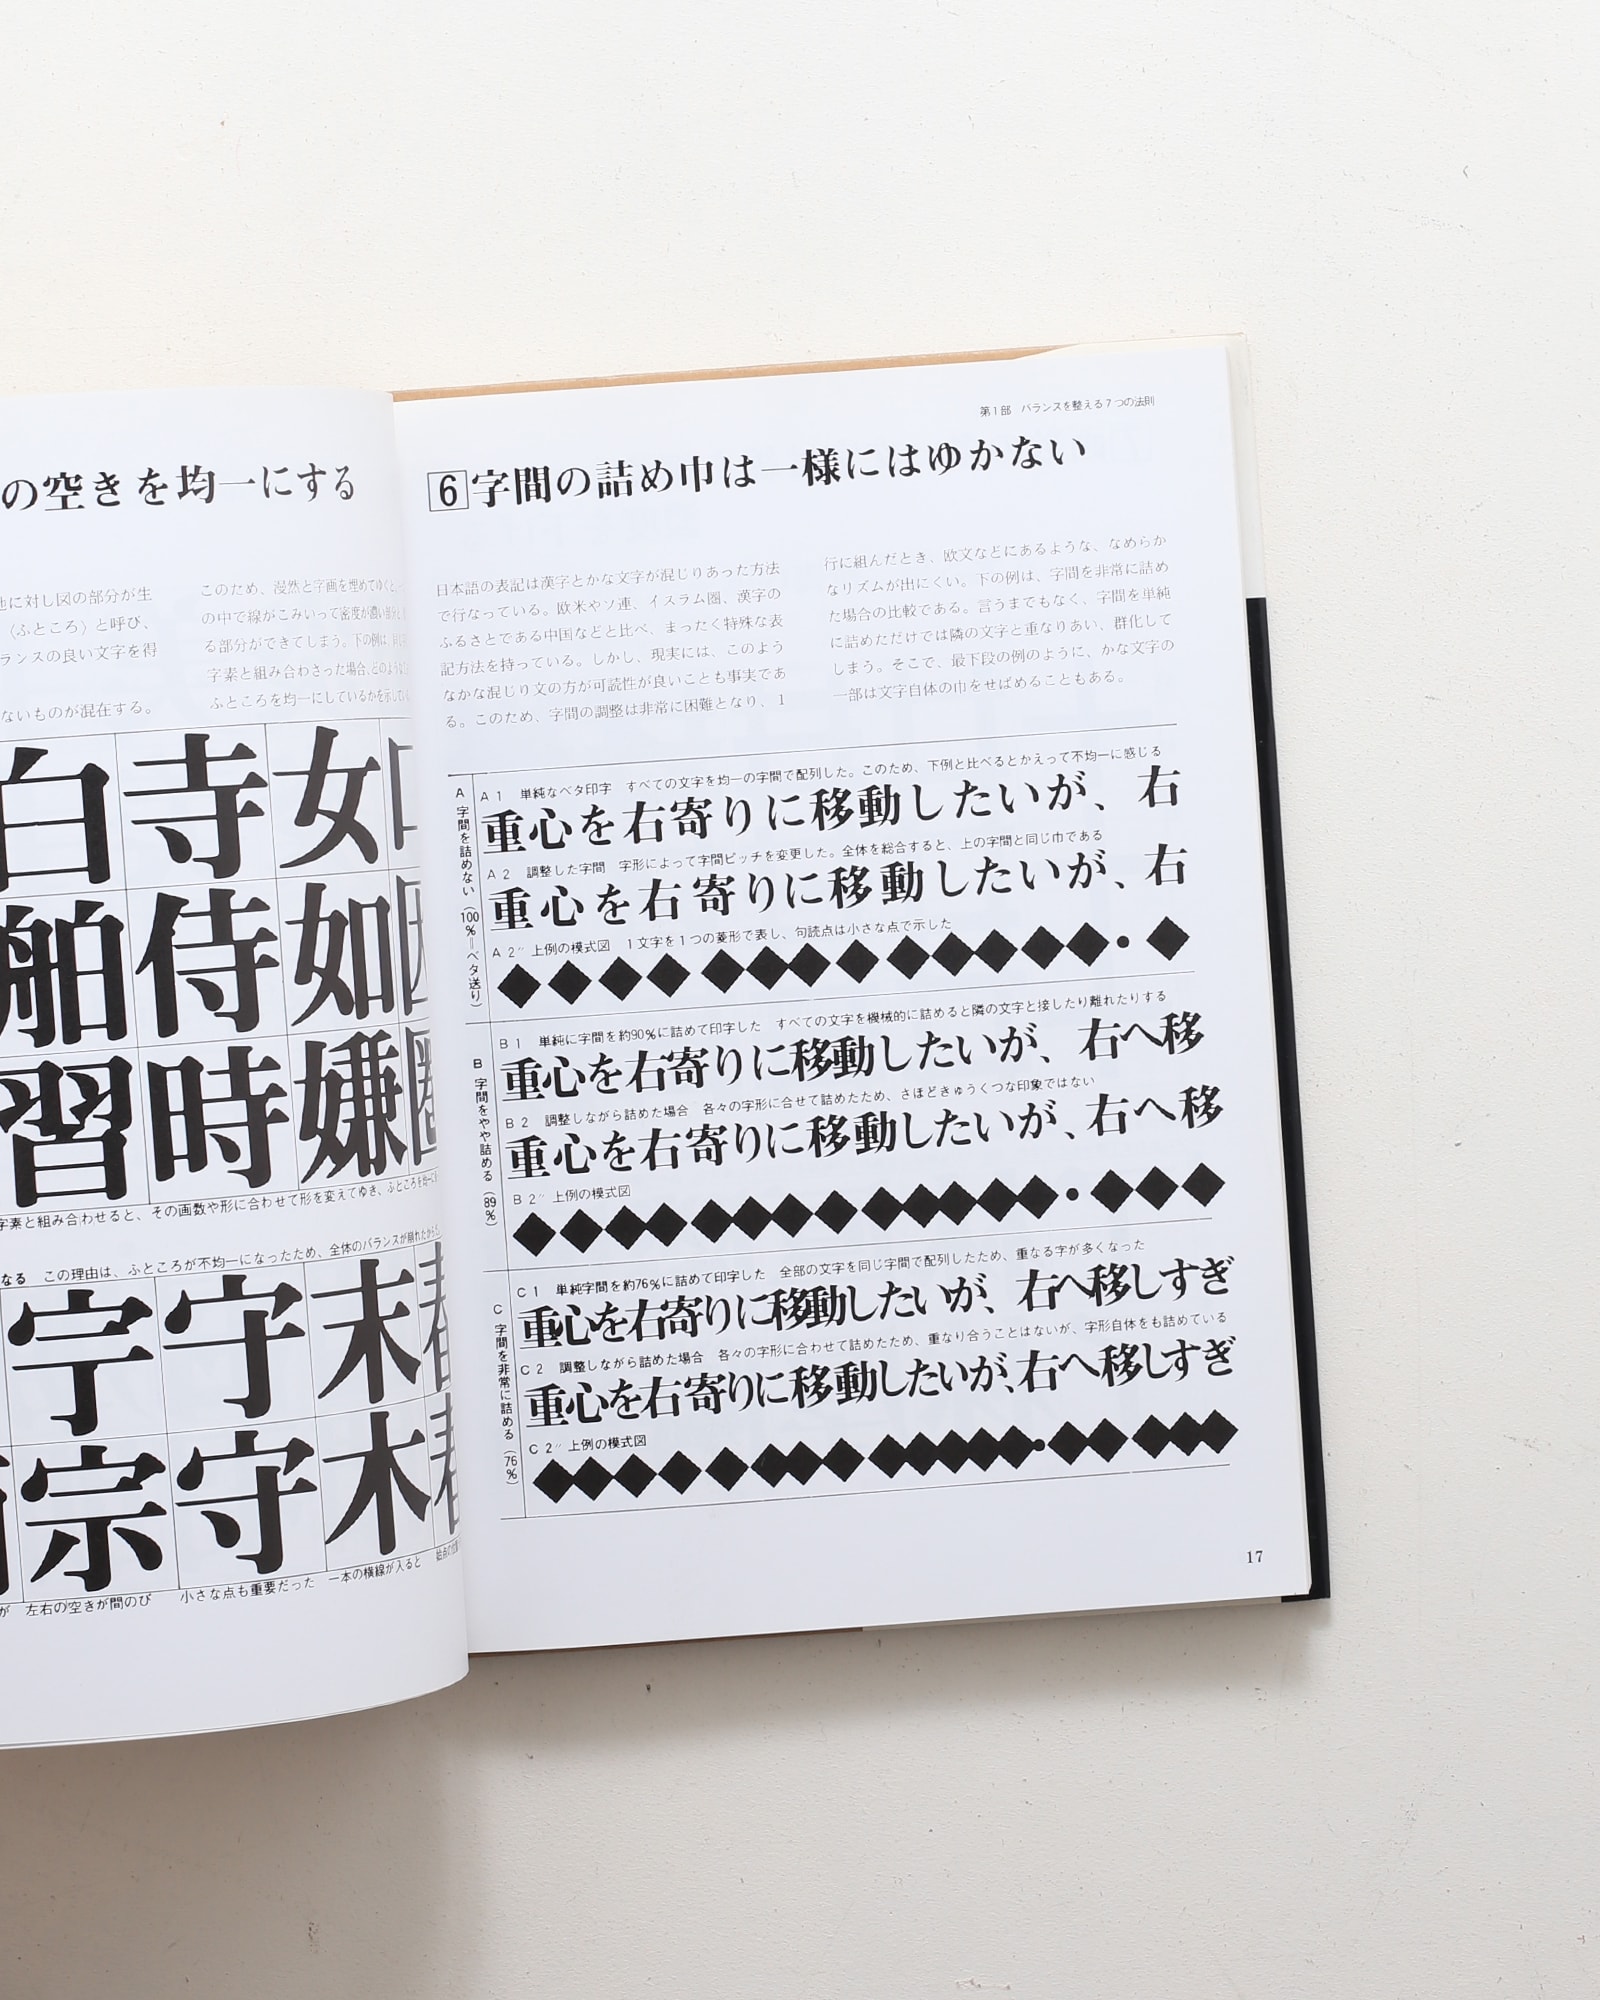 の空きを均一にする
地に対し図の部分が生
〈ふところ〉と呼び、
ランスの良い文字を得
ないものが混在する。
このため、漫然と字画を埋めてゆくと、
の中で線がこみいって密度が濃い部分
る部分ができてしまう。下の例は、
字素と組み合わさった場合、どのように
ふところを均一にしているかを示してい
白 寺 女
舶 侍 如
習 時 嫌
字素と組み合わせると、その画数や形に合わせて形を変えてゆき、ふところを均一に
なる この理由は、ふところが不均一になったため、全体のバランスが崩れたから
宁 守 末
宗 守 木
が 左右の空きが間のび 小さな点も重要だった 一本の横線が入ると
第1部 バランスを整える7つの法則
6 字間の詰め巾は一様にはゆかない
日本語の表記は漢字とかな文字が混じりあった方法
で行なっている。欧米やソ連、イスラム圏、漢字の
ふるさとである中国などと比べ、まったく特殊な表
記方法を持っている。しかし、現実には、このよう
なかな混じり文の方が可読性が良いことも事実であ
る。このため、字間の調整は非常に困難となり、1
行に組んだとき、欧文などにあるような、なめらか
なリズムが出にくい。下の例は、字間を非常に詰め
た場合の比較である。言うまでもなく、字間を単純
に詰めただけでは隣の文字と重なりあい、群化して
しまう。そこで、最下段の例のように、かな文字の
一部は文字自体の巾をせばめることもある。
A 字間を詰めない(100%=ベタ送り)
A 1 単純なベタ印字 すべての文字を均一の字間で配列した。このため、下例と比べるとかえって不均一に感じる
重心を右寄りに移動したいが、右
A 2 調整した字間 字形によって字間ピッチを変更した。全体を総合すると、上の字間と同じ巾である
重心を右寄りに移動したいが、右
A 2″ 上例の模式図 1文字を1つの菱形で表し、句読点は小さな点で示した
B 字間をやや詰める(89%)
B 1 単純に字間を約90%に詰めて印字した すべての文字を機械的に詰めると隣の文字と接したり離れたりする
重心を右寄りに移動したいが、右へ移
B 2 調整しながら詰めた場合 各々の字形に合せて詰めたため、さほどきゅうくつな印象ではない
重心を右寄りに移動したいが、右へ移
B 2″ 上例の模式図
C 字間を非常に詰める(76%)
C 1 単純字間を約76%に詰めて印字した 全部の文字を同じ字間で配列したため、重なる字が多くなった
重心を右寄りに移動したいが、右へ移しすぎ
C 2 調整しながら詰めた場合 各々の字形に合わせて詰めたため、重なり合うことはないが、字形自体をも詰めている
重心を右寄りに移動したいが、右へ移しすぎ
C 2″ 上例の模式図
17